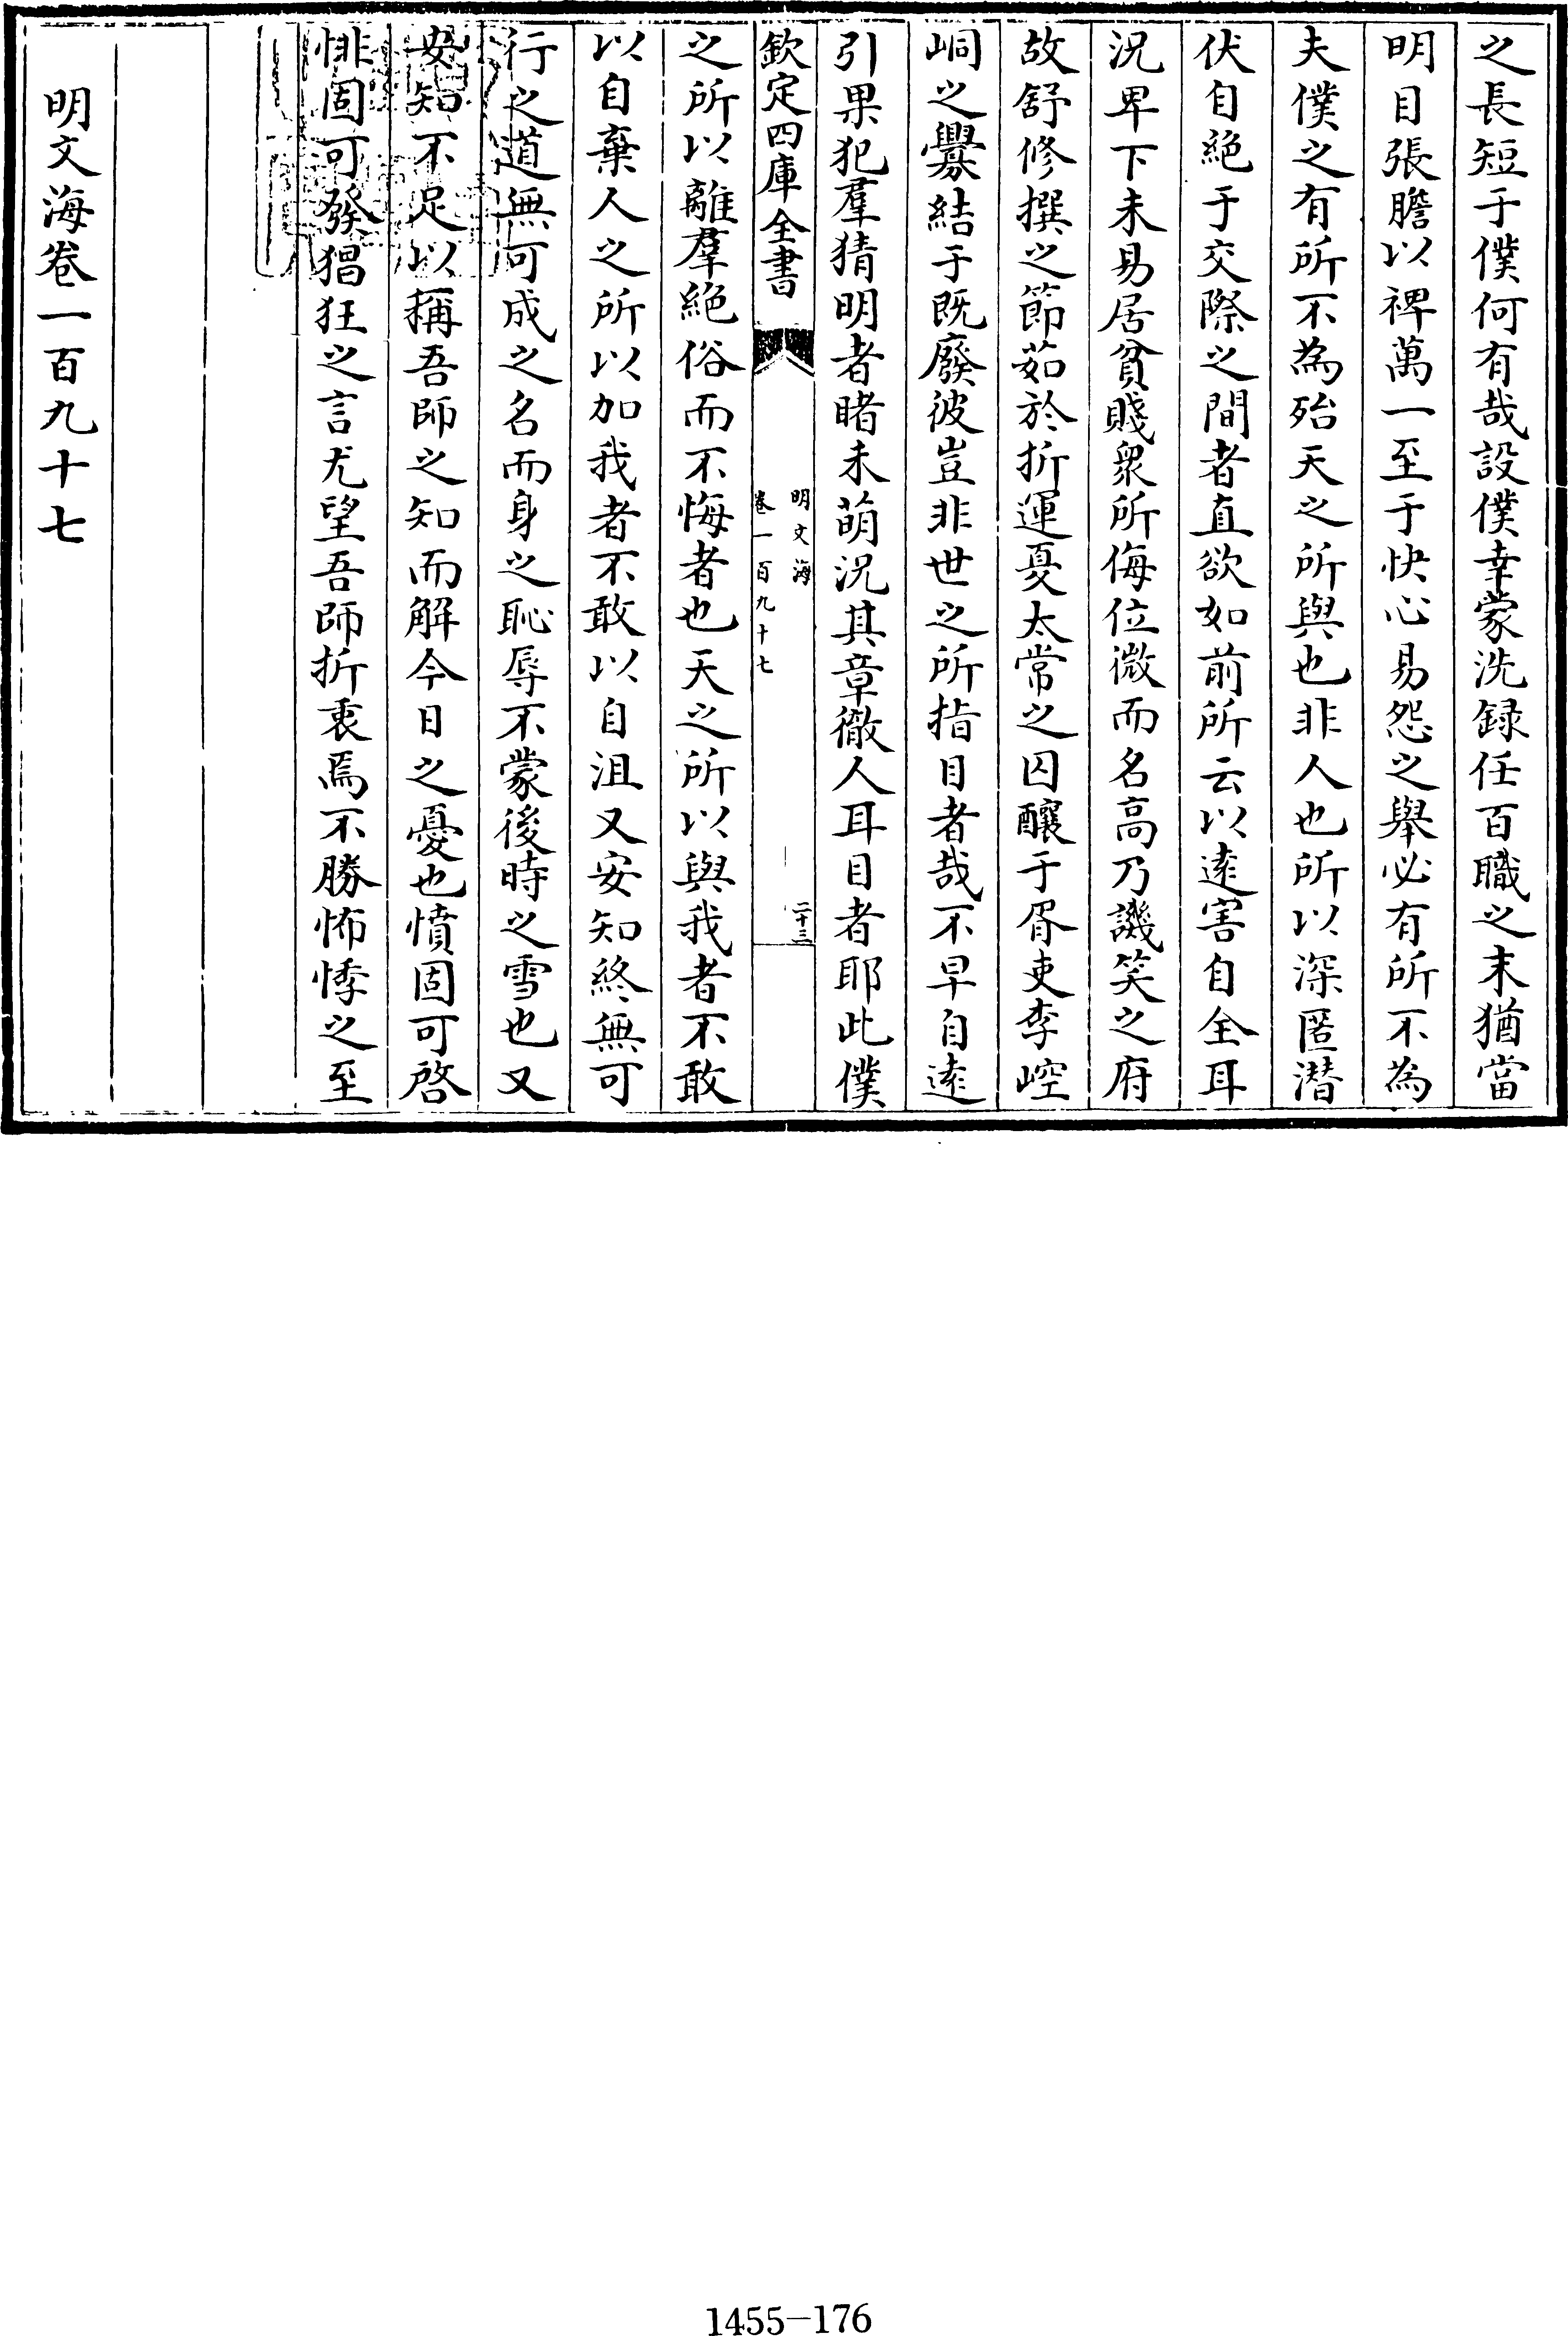 之長短于僕何有哉設僕幸蒙洗録任百職之末猶當
明目張膽以裨萬一至于快心易怨之舉必有所不為
夫僕之有所不為殆天之所與也非人也所以深匿潛
伏自絶于交際之間者直欲如前所云以逺害自全耳
況卑下未易居貧賤衆所侮位微而名高乃譏笑之府
故舒修撰之節茹於折運憂太常之囚釀于胥吏李崆
峒之釁結于既廢彼豈非世之所指目者哉不早自逺
引果犯羣猜明者睹未萌況其章徹人耳目者耶此僕
欽定四庫全書
明文海
卷一百九十七
二十三
之所以離羣絶俗而不悔者也天之所以與我者不敢
以自棄人之所以加我者不敢以自沮又安知終無可
行之道無可成之名而身之恥辱不蒙後時之雪也又
安知不足以稱吾師之知而解今日之憂也憤固可啓
悱固可發猖狂之言尤望吾師折衷焉不勝怖悸之至
明文海卷一百九十七
1455-176